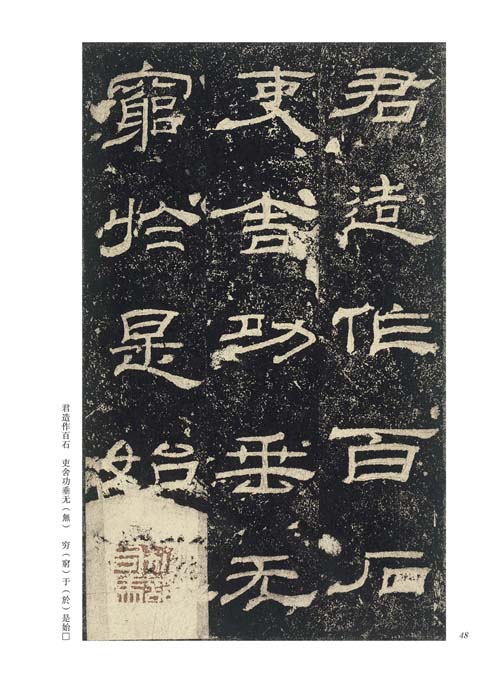 君造作百石
吏舍功垂无
窮於是始
君造作百石　吏舍功垂无（無）　穷（窮）于（於）是始□
48